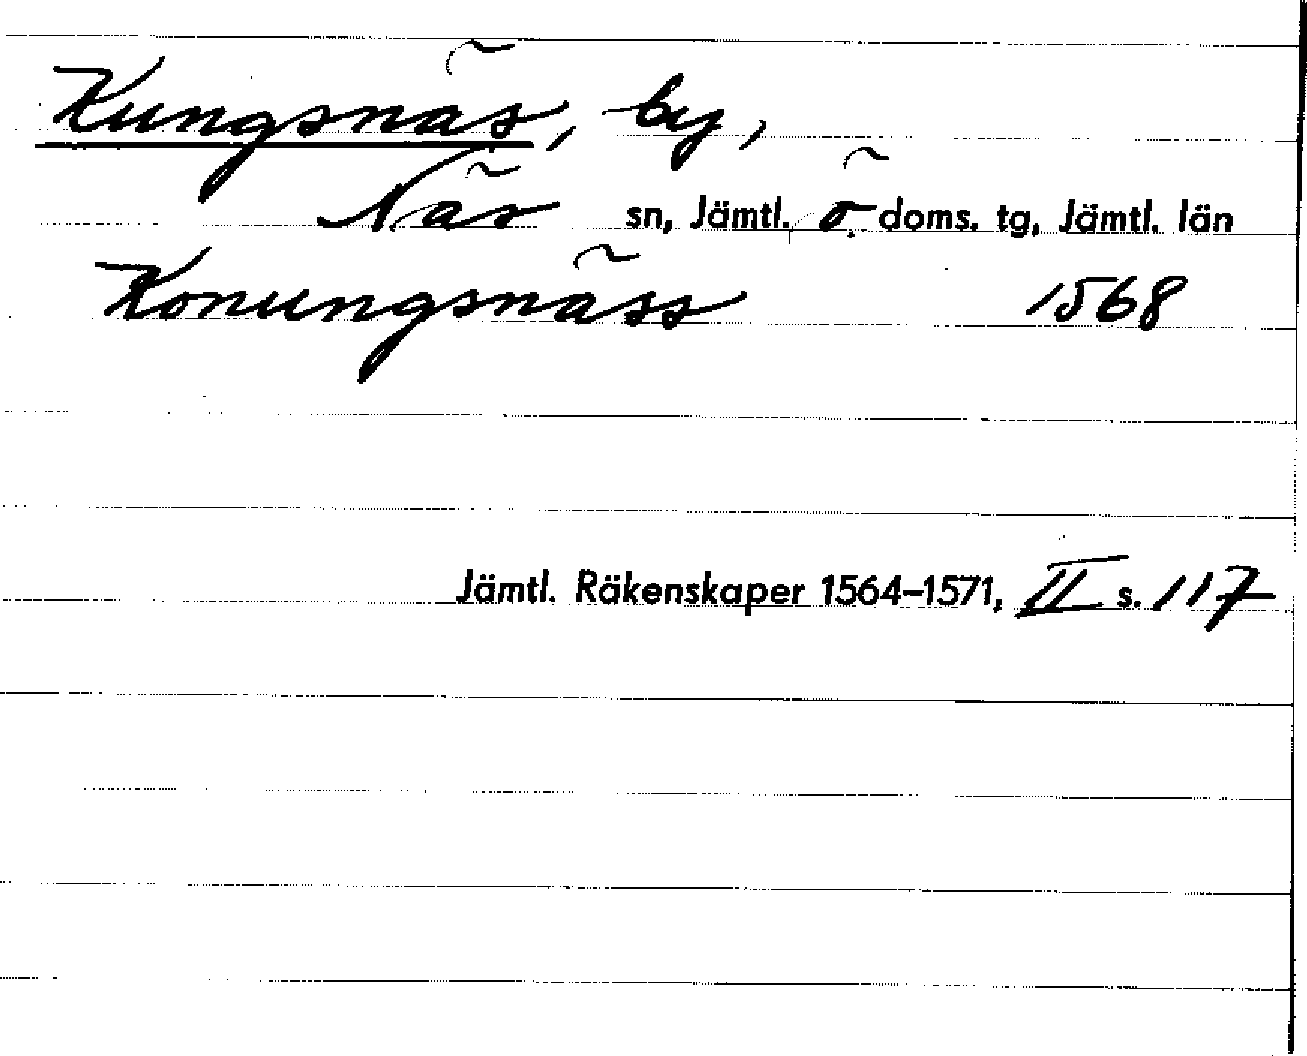 Kungsnäs, by,
Näs sn, Jämtl. ö. doms. tg, Jämtl. län
Konungsnäss 1568
Jämtl. Räkenskaper 1564–1571, II s. 117